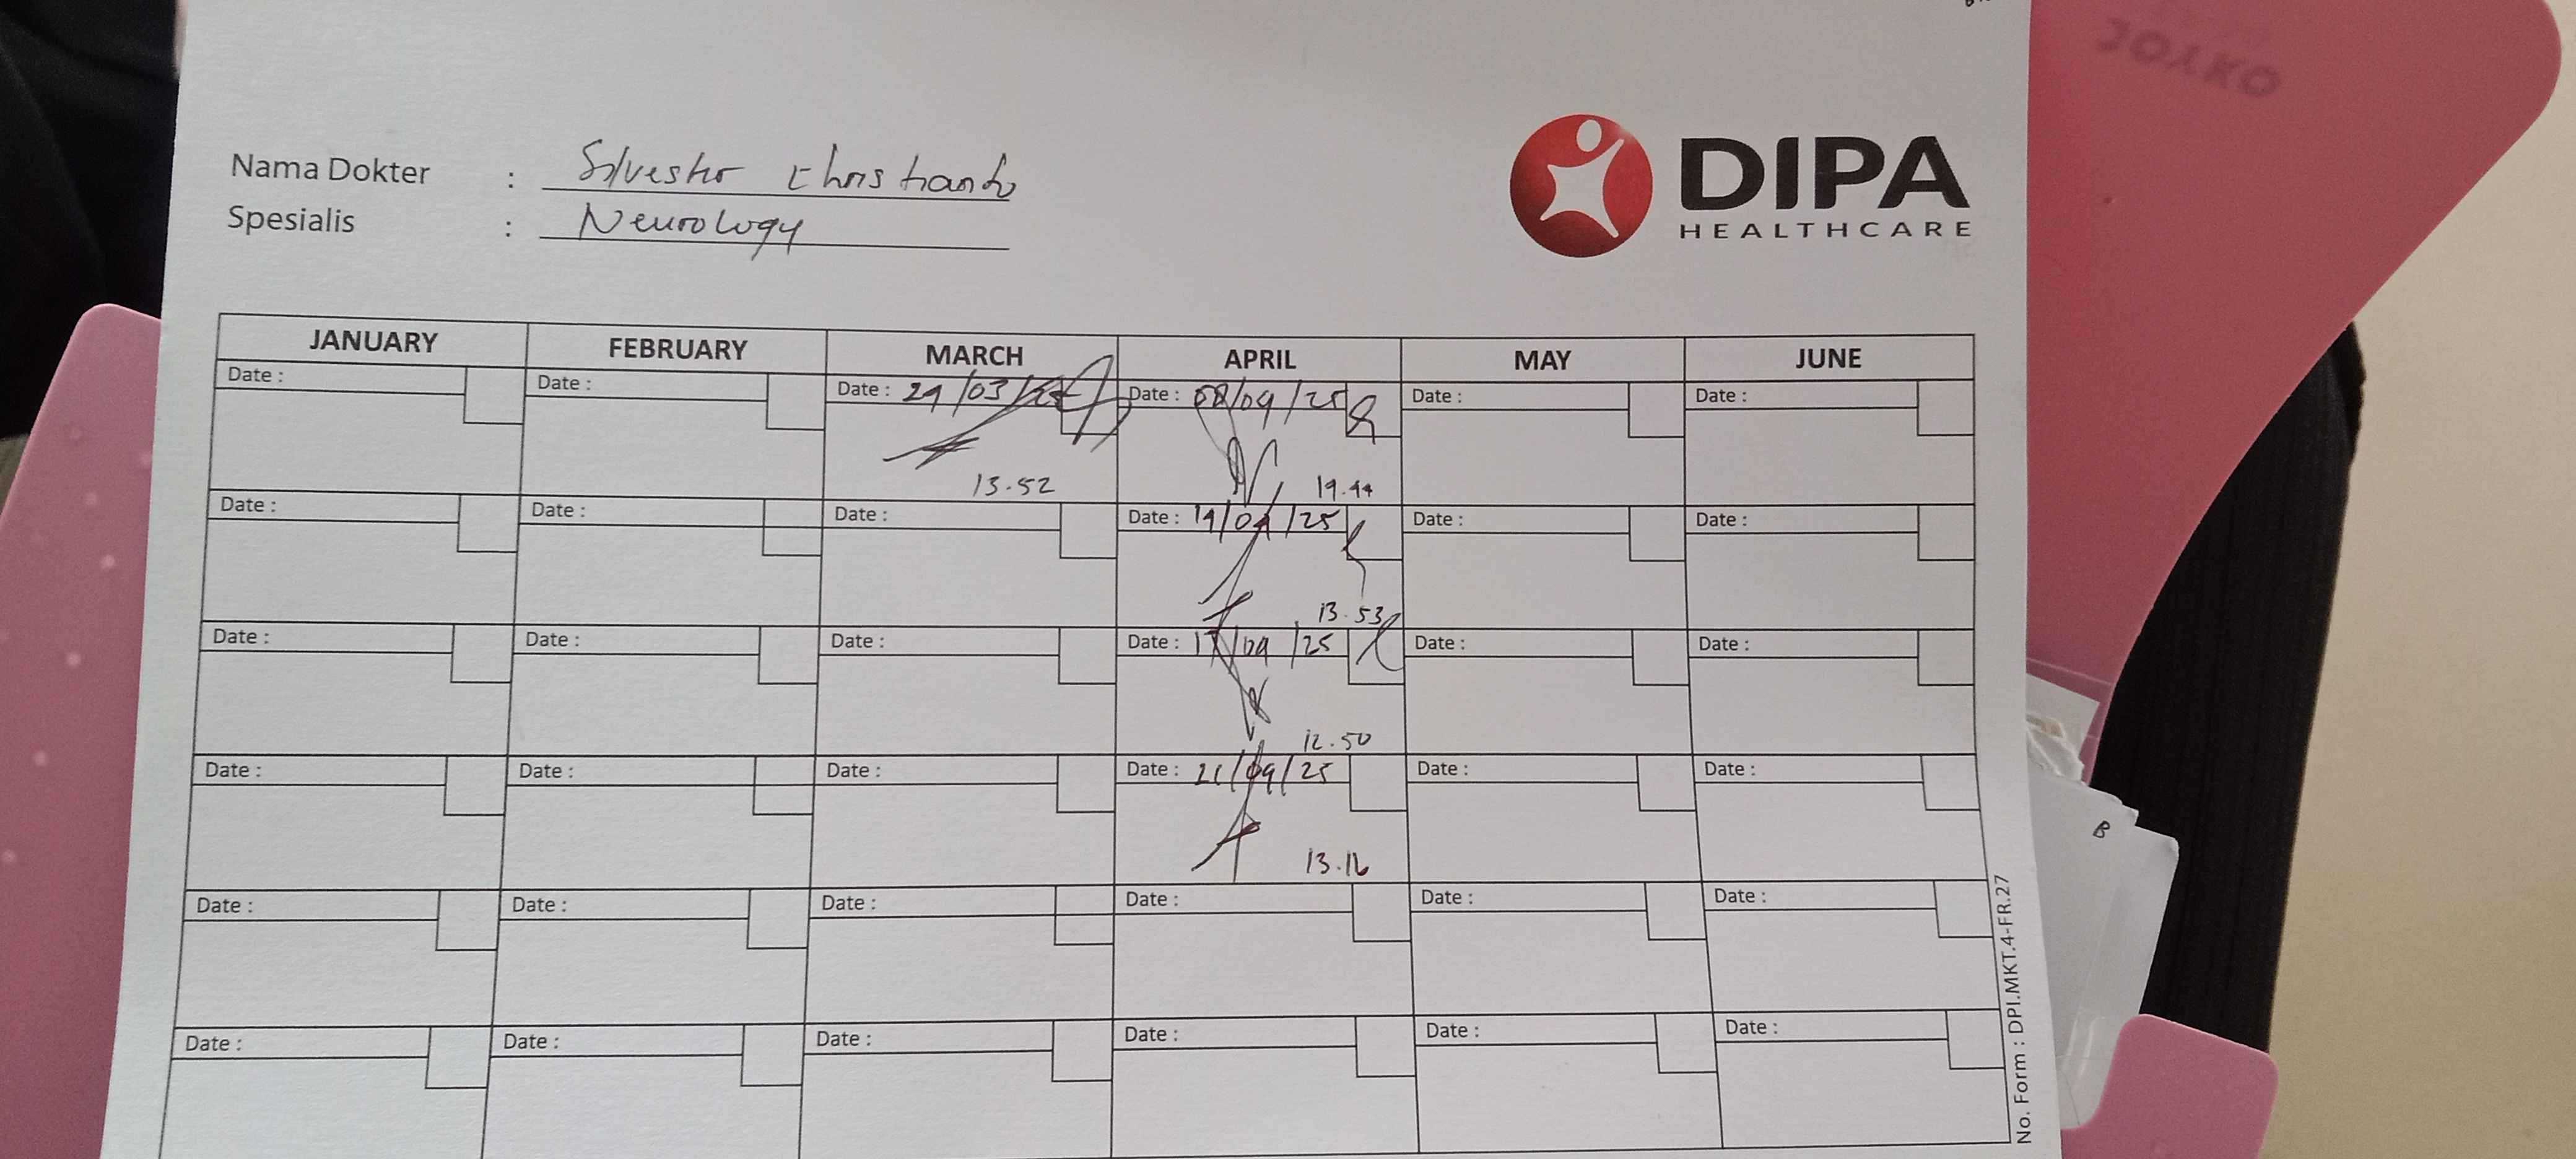 Nama Dokter : Silvester Christianto
Spesialis : Neurology
DIPA
HEALTHCARE
JANUARY FEBRUARY MARCH APRIL MAY JUNE
Date : Date : Date : 24/03/25 Date : 08/04/25 Date : Date :
13.52 19.44
Date : Date : Date : Date : 14/04/25 Date : Date :
13.53
Date : Date : Date : Date : 17/04/25 Date : Date :
12.50
Date : Date : Date : Date : 21/04/25 Date : Date :
13.16
Date : Date : Date : Date : Date : Date :
Date : Date : Date : Date : Date : Date :
No. Form : DPI.MKT.4-FR.27
JOYKO
B